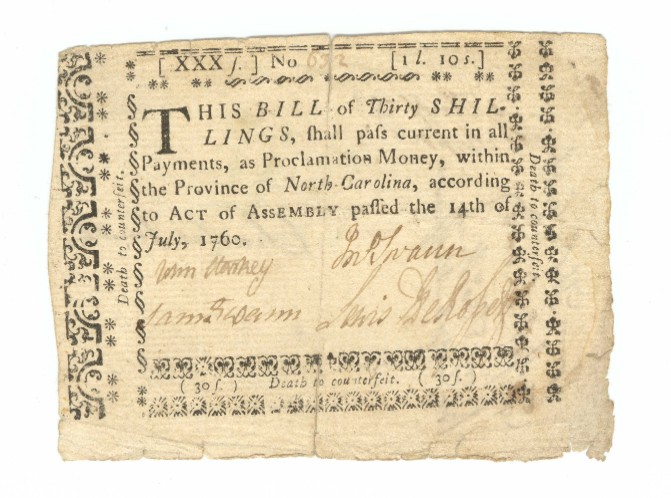 [ XXX ſ. ] No 632 [1 l. 10 s.]
THIS BILL of Thirty SHIL-
LINGS, ſhall paſs current in all
Payments, as Proclamation Money, within
the Province of North-Carolina, according
to ACT of ASSEMBLY paſſed the 14th of
July, 1760.
Jno Swann
John Starkey
Sam Swann Lewis DeRoſſet
( 30 ſ. ) Death to counterfeit. ( 30 ſ. )
Death to counterfeit.
Death to counterfeit.